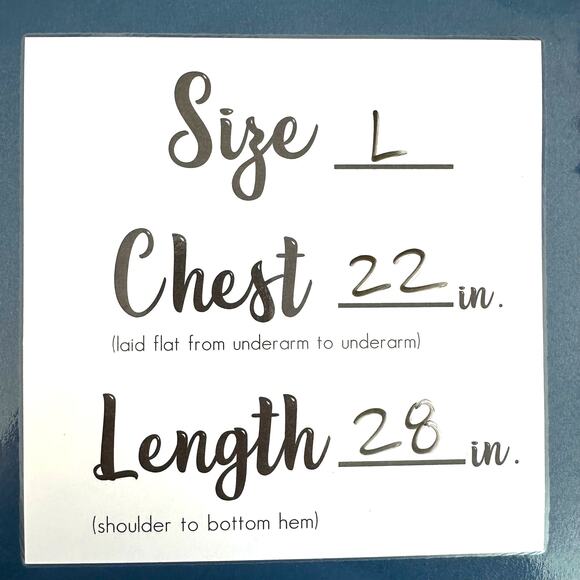 Size L
Chest 22 in.
(laid flat from underarm to underarm)
Length 28 in.
(shoulder to bottom hem)